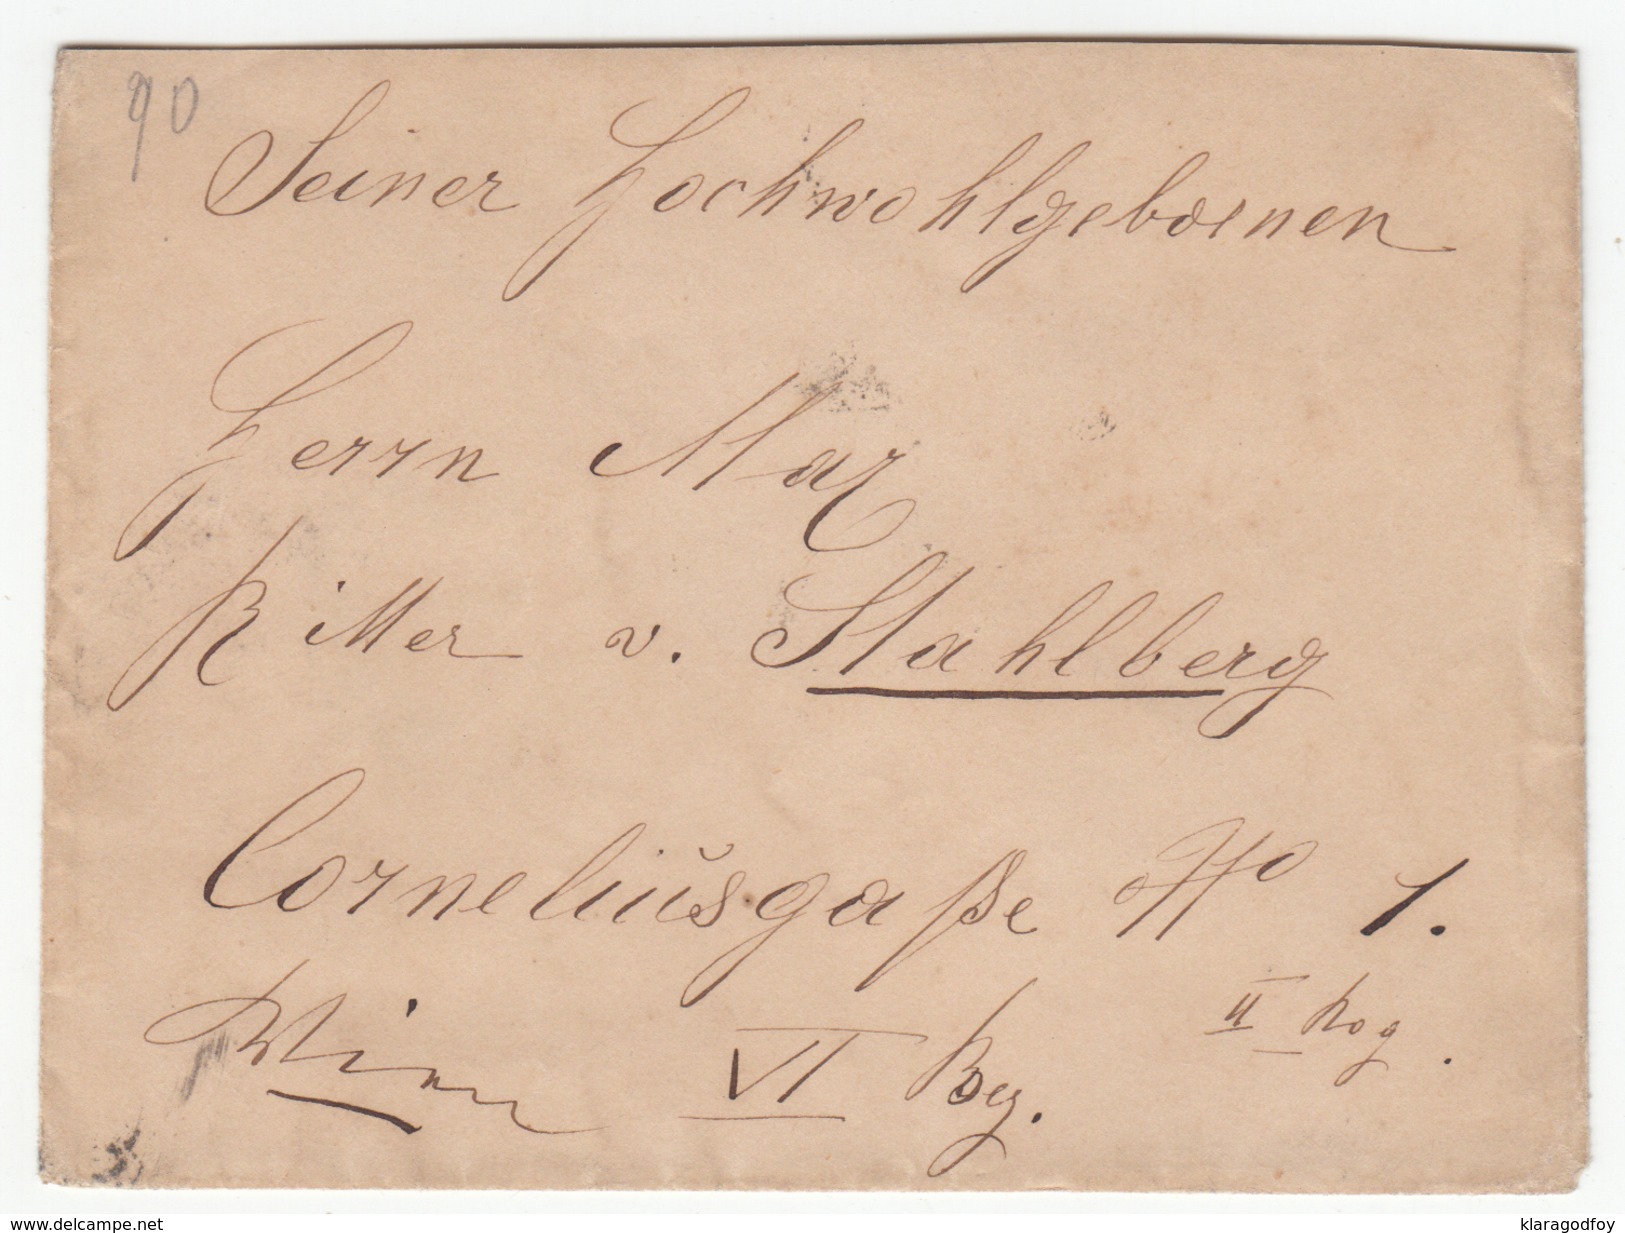 90
Seiner Hochwohlgebornen
Herrn Max
Ritter v. Stahlberg
Corneliusgaße No 1.
Wien VI Bez.
II
www.delcampe.net
klaragodfoy